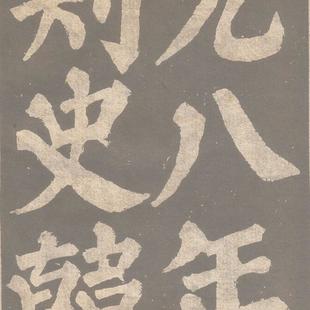 元八年
刺史韓